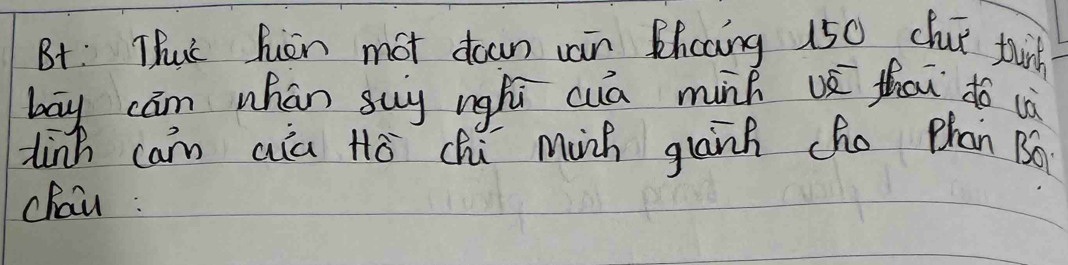 Bt: Thực hiện một đoạn văn khoảng 150 chữ trình
bày cảm nhận suy nghĩ của mình về thái độ và
tình cảm của Hồ Chí Minh giành cho Phan Bội
Châu :